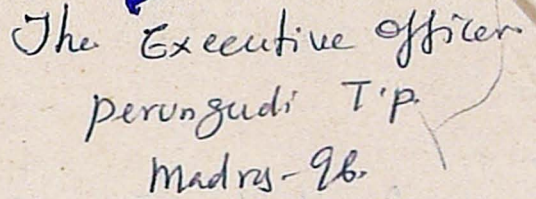 The Executive Officer.
Perungudi T.p.
Madras-96.